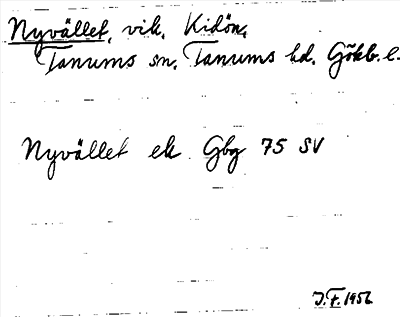 Nyvället, vik, Kidön,
Tanums sn, Tanums hd. Gökb. l.
Nyvället ek Gbg 75 SV
J.F. 1956